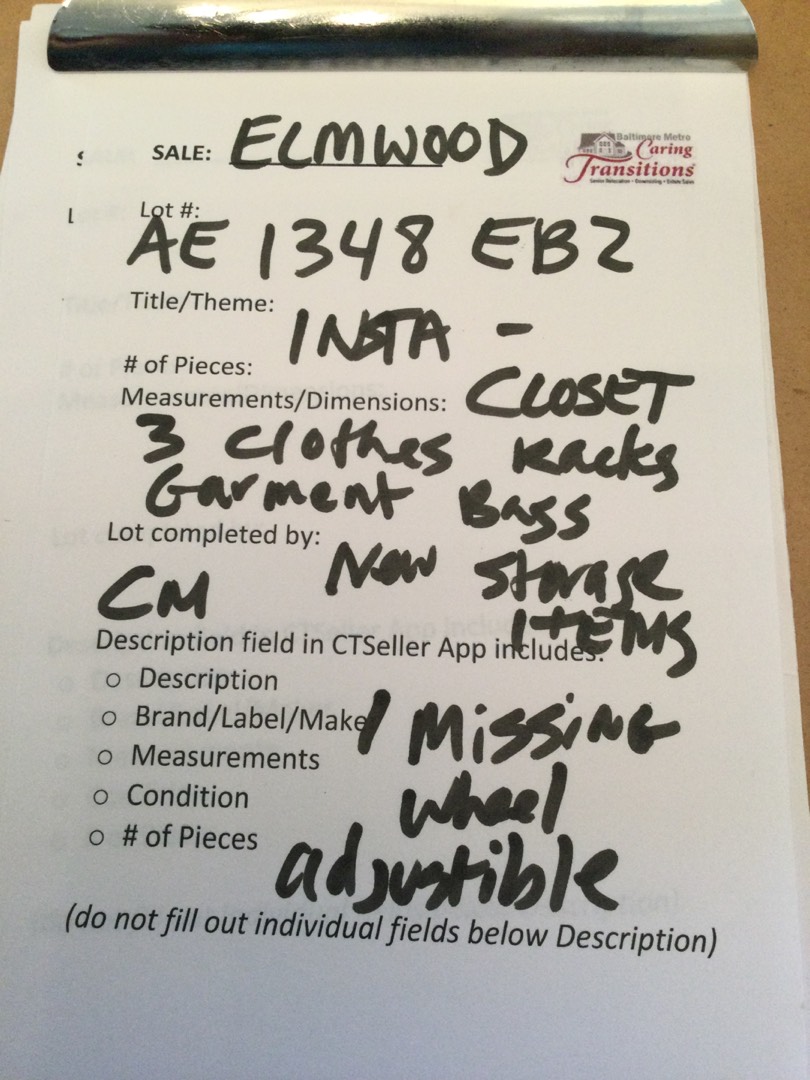 SALE: ELMWOOD
Baltimore Metro
Caring
Transitions
Senior Relocation • Downsizing • Estate Sales
Lot #:
AE 1348 EB2
Title/Theme: INSTA -
# of Pieces: CLOSET
Measurements/Dimensions:
3 Clothes Racks
Garment Bags
Lot completed by: New Storage
CM ITEMS
Description field in CTSeller App includes:
○ Description
○ Brand/Label/Make
○ Measurements
○ Condition
○ # of Pieces
1 Missing
wheel
adjustible
(do not fill out individual fields below Description)